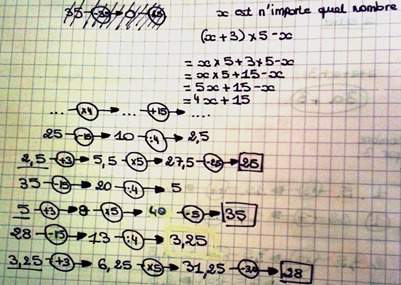 x est n'importe quel nombre
(x+3)×5-x
= x×5+3×5-x
= x×5+15-x
= 5x+15-x
= 4x+15
... ×4 → ... +15 → ....
25 -15 → 10 :4 → 2,5
2,5 +3 → 5,5 ×5 → 27,5 → 25
35 -15 → 20 :4 → 5
5 +3 → 8 ×5 → 40 -5 → 35
28 -15 → 13 :4 → 3,25
3,25 +3 → 6,25 ×5 → 31,25 → 28